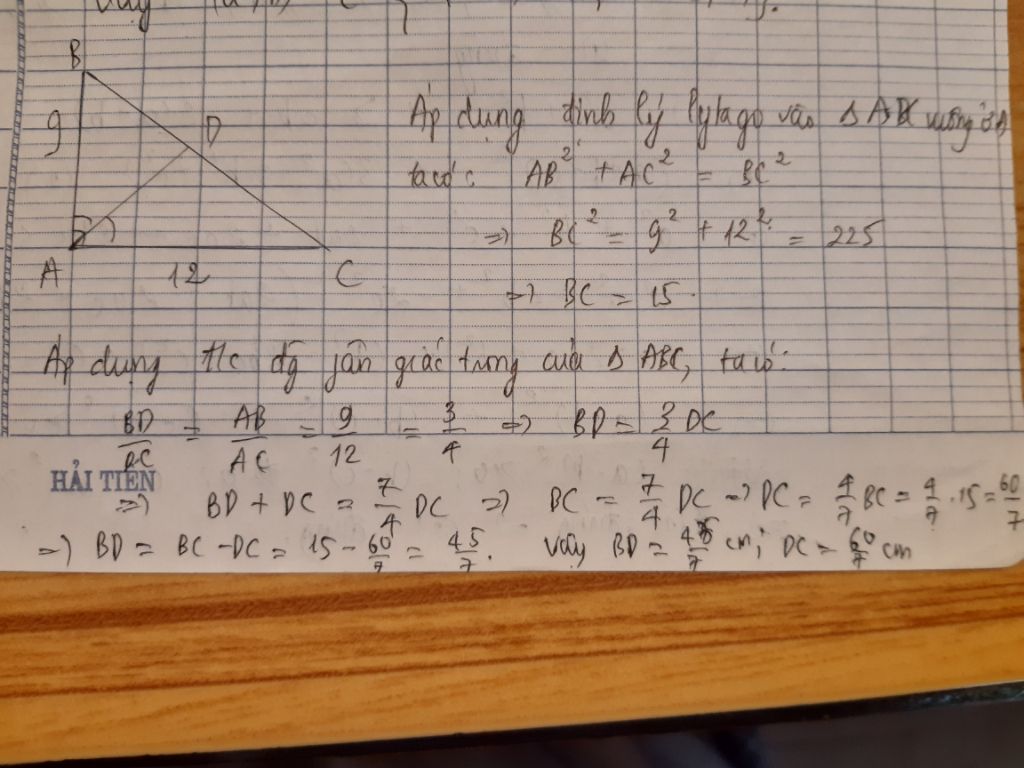 Vậy
B
9
D
A
12
C
Áp dụng định lý Pytago vào Δ ABC vuông ở A
ta có: AB² + AC² = BC²
=> BC² = 9² + 12² = 225
=> BC = 15.
Áp dụng t/c đg phân giác trong của Δ ABC, ta có:
BD/DC = AB/AC = 9/12 = 3/4 => BD = 3/4 DC
HẢI TIẾN
=> BD + DC = 7/4 DC => BC = 7/4 DC => DC = 4/7 BC = 4/7 . 15 = 60/7
=> BD = BC - DC = 15 - 60/7 = 45/7. Vậy BD = 45/7 cm; DC = 60/7 cm